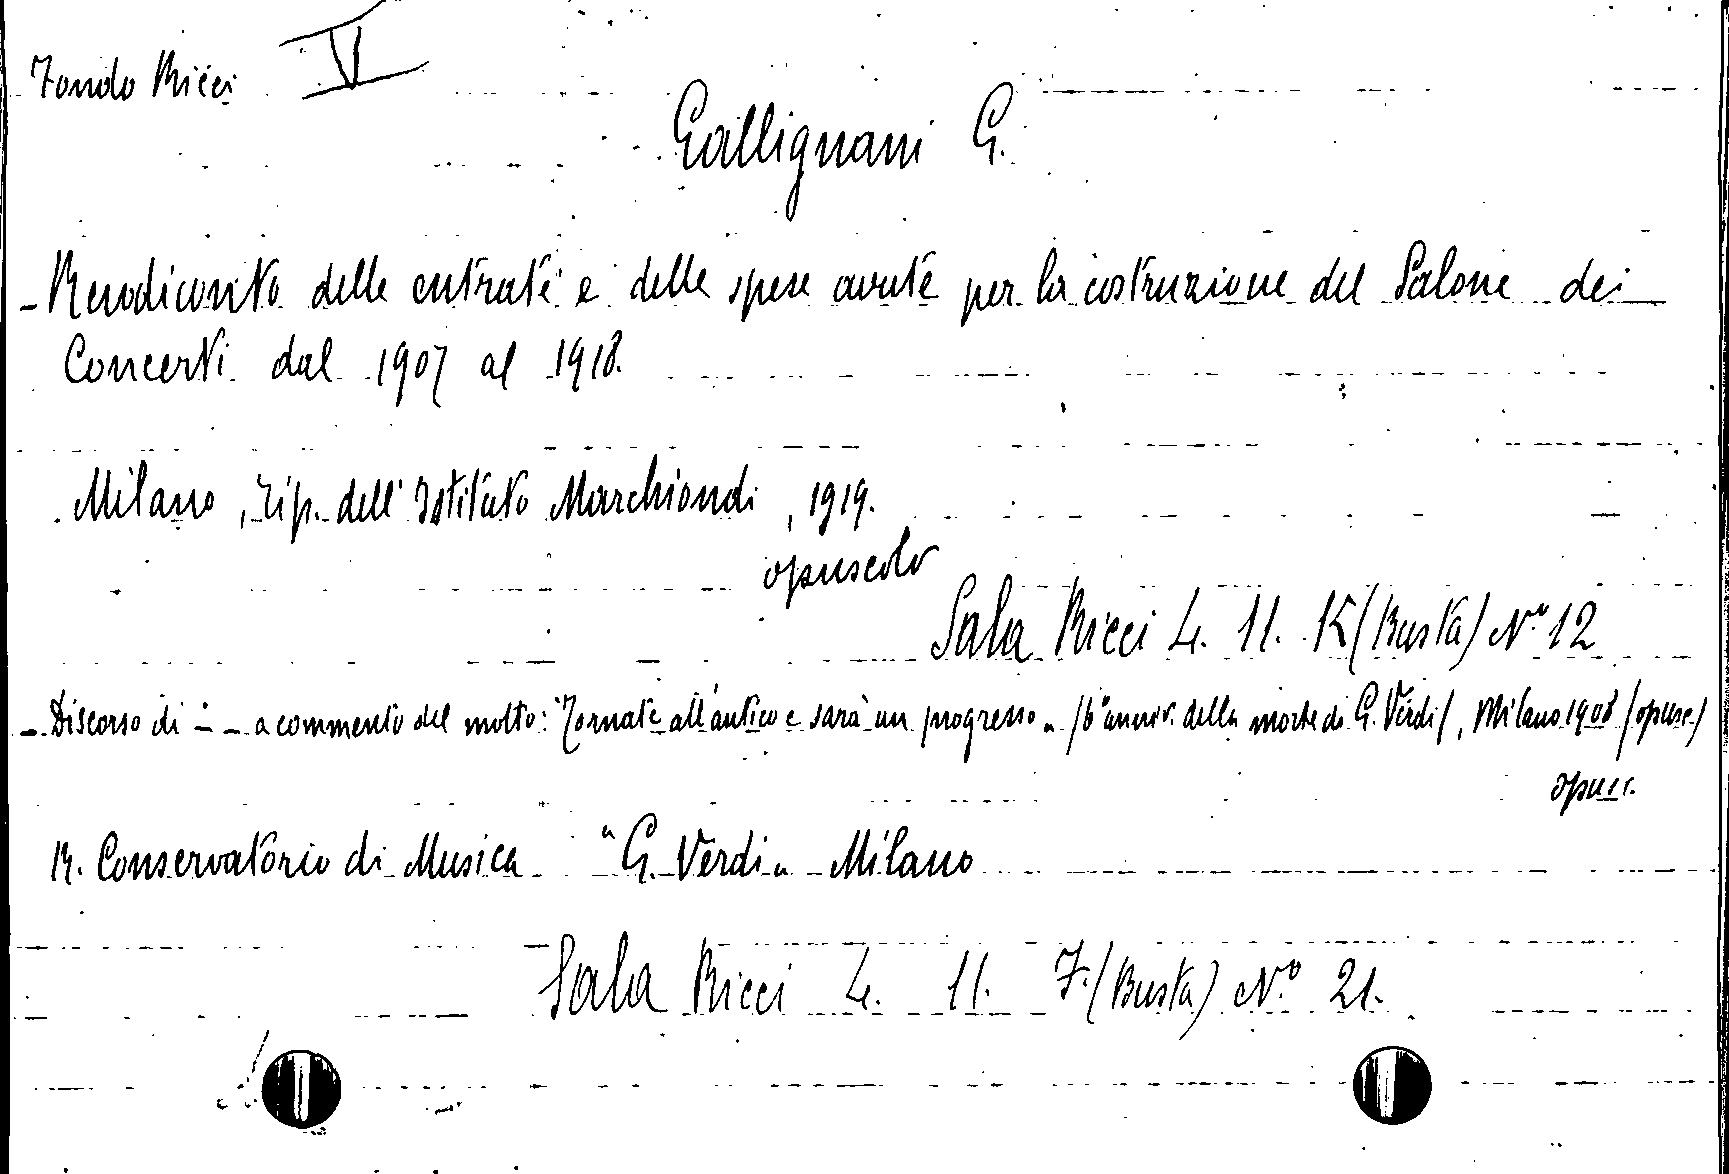 Fondo Ricci V
Gallignani G.
- Rendiconto delle entrate e delle spese avute per la costruzione del Salone dei
Concerti dal 1907 al 1918.
Milano, Tip. dell'Istituto Marchiondi, 1919.
opuscolo
Sala Ricci L. 11. K (Busta) N.º 12
- Discorso di - - a commento del motto: "Tornate all'antico e sarà un progresso" /6º anniv. della morte di G. Verdi/, Milano 1908 /opusc./
opusc.
R. Conservatorio di Musica "G. Verdi" Milano
Sala Ricci L. 11. F. (Busta) N.º 21.